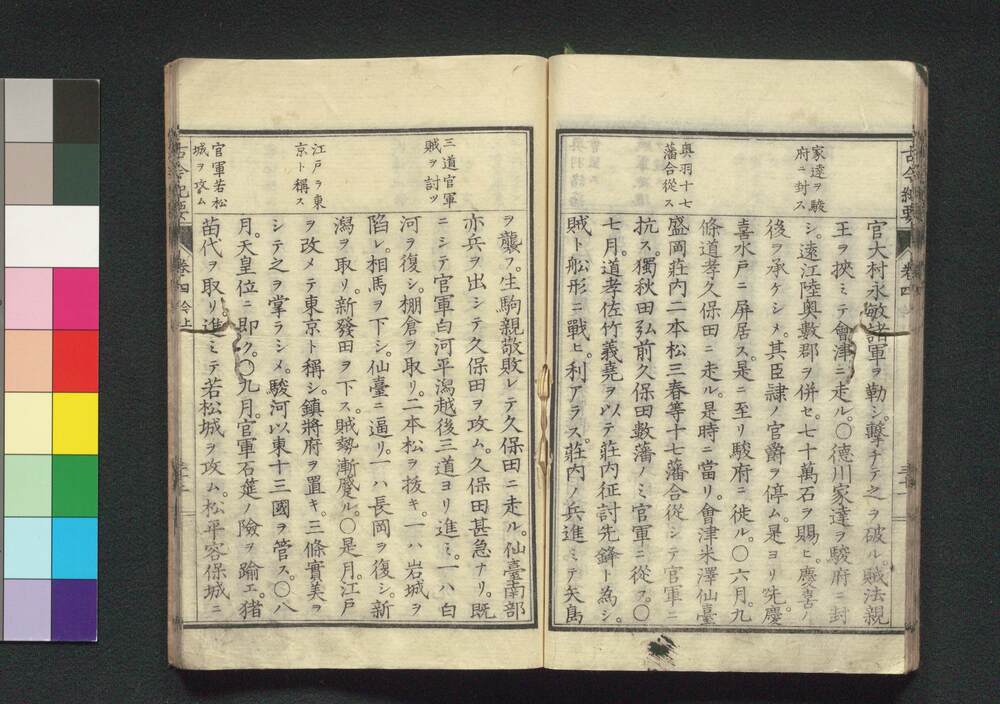 古今紀要
卷四
家達ヲ駿
府ニ封ス
奥羽十七
藩合從ス
官大村永敏諸軍ヲ勒シ。擊チテ之ヲ破ル。賊法親
王ヲ挾ミテ會津ニ走ル。〇德川家達ヲ駿府ニ封
シ。遠江陸奥數郡ヲ併セ。七十萬石ヲ賜ヒ。慶喜ノ
後ヲ承ケシメ。其臣隷ノ官爵ヲ停ム。是ヨリ先。慶
喜水戸ニ屏居ス。是ニ至リ駿府ニ徙ル。〇六月。九
條道孝久保田ニ走ル。是時ニ當リ。會津米澤仙臺
盛岡莊内二本松三春等十七藩合從シテ官軍ニ
抗ス。獨秋田弘前久保田數藩ノミ官軍ニ從フ。〇
七月。道孝佐竹義堯ヲ以テ莊内征討先鋒ト為シ。
賊ト舩形ニ戰ヒ。利アラス。莊内ノ兵進ミテ矢島
三道官軍
賊ヲ討ツ
江戸ヲ東
京ト稱ス
官軍若松
城ヲ攻ム
ヲ襲フ。生駒親敬敗レテ久保田ニ走ル。仙臺南部
亦兵ヲ出シテ久保田ヲ攻ム。久保田甚急ナリ。既
ニシテ官軍白河平潟越後三道ヨリ進ミ。一ハ白
河ヲ復シ。棚倉ヲ取リ。二本松ヲ拔キ。一ハ岩城ヲ
陷レ。相馬ヲ下シ。仙臺ニ逼リ。一ハ長岡ヲ復シ。新
潟ヲ取リ。新發田ヲ下ス。賊勢漸蹙ル。〇是月。江戸
ヲ改メテ東京ト稱シ。鎮將府ヲ置キ。三條實美ヲ
シテ之ヲ掌ラシメ。駿河以東十三國ヲ管ス。〇八
月。天皇位ニ即ク。〇九月。官軍石筵ノ險ヲ踰エ。猪
苗代ヲ取リ。進ミテ若松城ヲ攻ム。松平容保城ニ
古今紀要
卷四